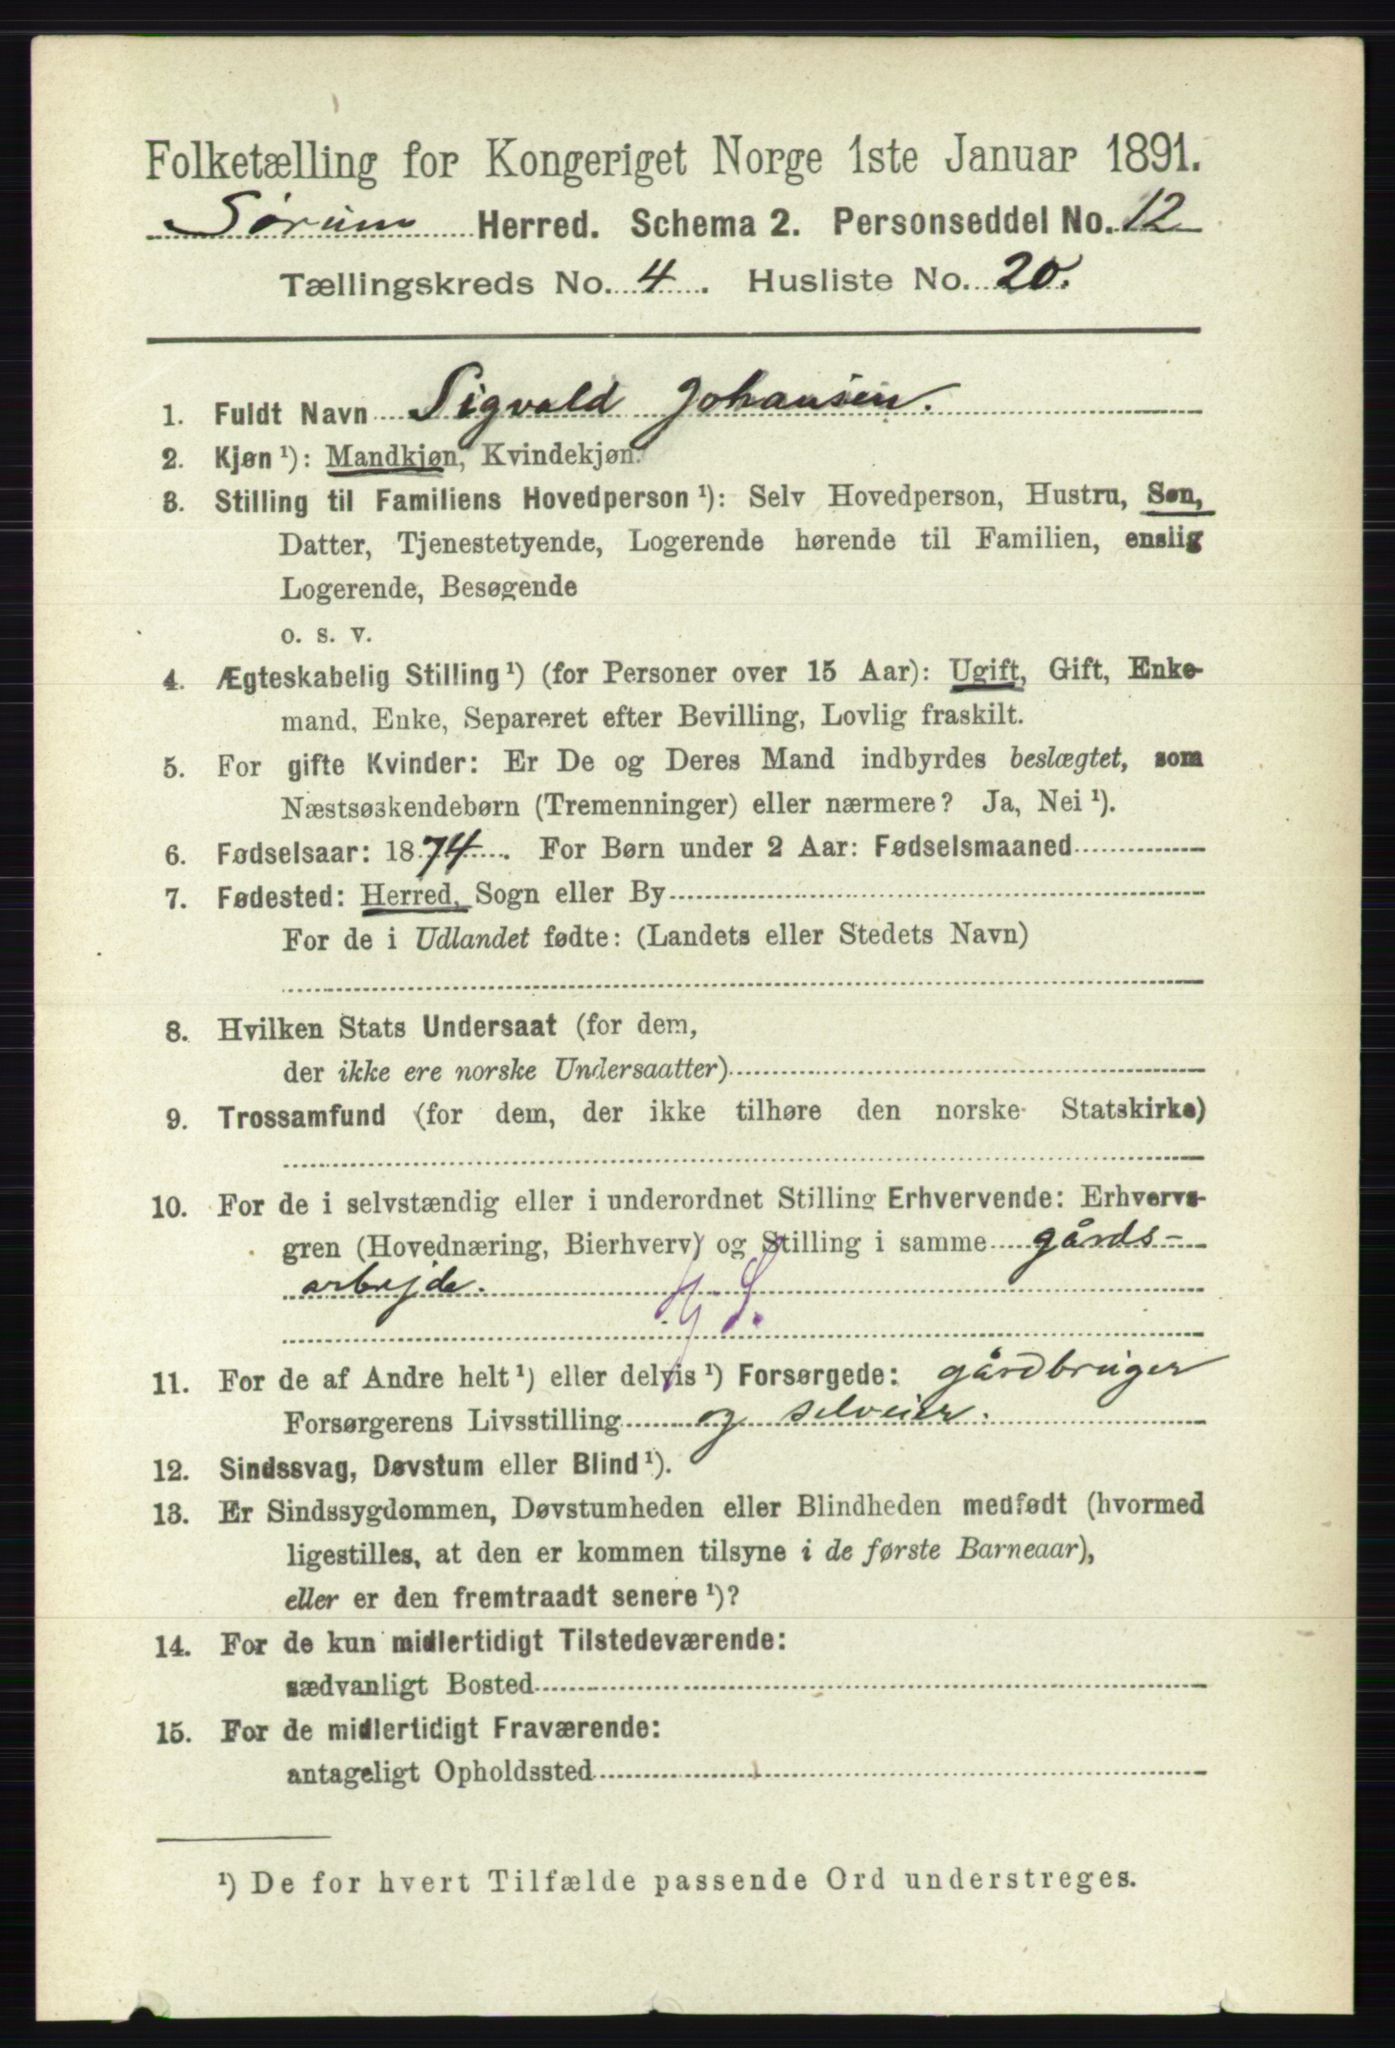 Folketælling for Kongeriget Norge 1ste Januar 1891.
Sørum Herred. Schema 2. Personseddel No. 12
Tællingskreds No. 4. Husliste No. 20.
1. Fuldt Navn Sigvald Johansen.
2. Kjøn ¹): Mandkjøn, Kvindekjøn.
3. Stilling til Familiens Hovedperson ¹): Selv Hovedperson, Hustru, Søn,
Datter, Tjenestetyende, Logerende hørende til Familien, enslig
Logerende, Besøgende
o. s. v.
4. Ægteskabelig Stilling ¹) (for Personer over 15 Aar): Ugift, Gift, Enke-
mand, Enke, Separeret efter Bevilling, Lovlig fraskilt.
5. For gifte Kvinder: Er De og Deres Mand indbyrdes beslægtet, som
Næstsøskendebørn (Tremenninger) eller nærmere? Ja, Nei ¹).
6. Fødselsaar: 1874. For Børn under 2 Aar: Fødselsmaaned
7. Fødested: Herred, Sogn eller By
For de i Udlandet fødte: (Landets eller Stedets Navn)
8. Hvilken Stats Undersaat (for dem,
der ikke ere norske Undersaatter)
9. Trossamfund (for dem, der ikke tilhøre den norske Statskirke)
10. For de i selvstændig eller i underordnet Stilling Erhvervende: Erhvervs-
gren (Hovednæring, Bierhverv) og Stilling i samme gårds-
arbejde.
11. For de af Andre helt ¹) eller delvis ¹) Forsørgede: gårdbruger
Forsørgerens Livsstilling og selveier.
12. Sindssvag, Døvstum eller Blind ¹).
13. Er Sindssygdommen, Døvstumheden eller Blindheden medfødt (hvormed
ligestilles, at den er kommen tilsyne i de første Barneaar),
eller er den fremtraadt senere ¹)?
14. For de kun midlertidigt Tilstedeværende:
sædvanligt Bosted
15. For de midlertidigt Fraværende:
antageligt Opholdssted
¹) De for hvert Tilfælde passende Ord understreges.